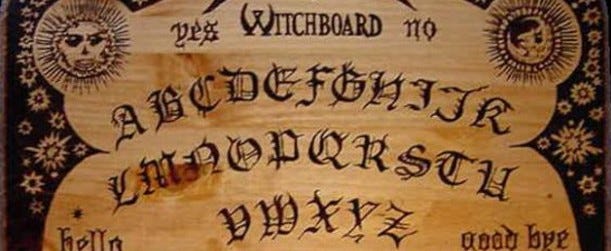 yes WITCHBOARD no
ABCDEFGHIJK
LMNOPQRSTU
VWXYZ
hello good bye